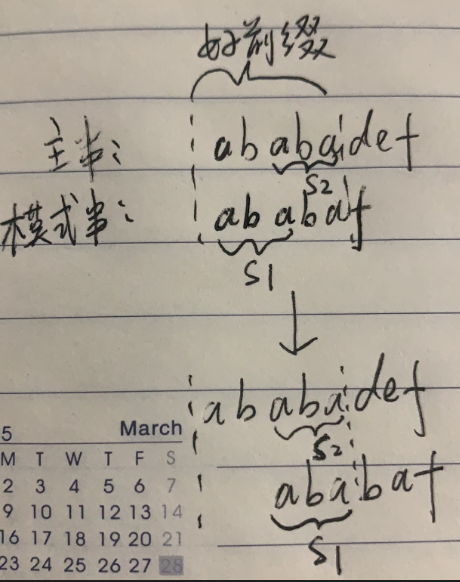 好前缀
主串: ababadef
S2
模式串: ababaf
S1
ababadef
S2
ababaf
S1
5 March
M T W T F S
2 3 4 5 6 7
9 10 11 12 13 14
16 17 18 19 20 21
23 24 25 26 27 28